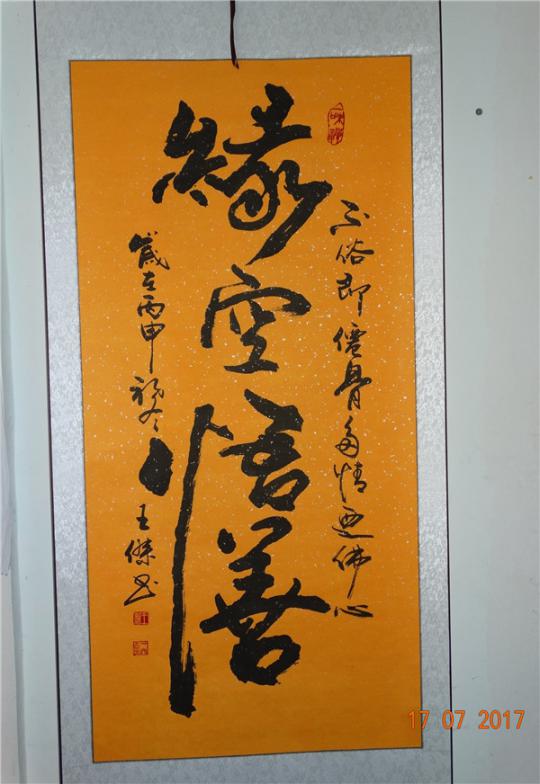 不俗即僊骨多情迺佛心
緣空悟善
歲在丙申初冬
王傑书
17 07 2017